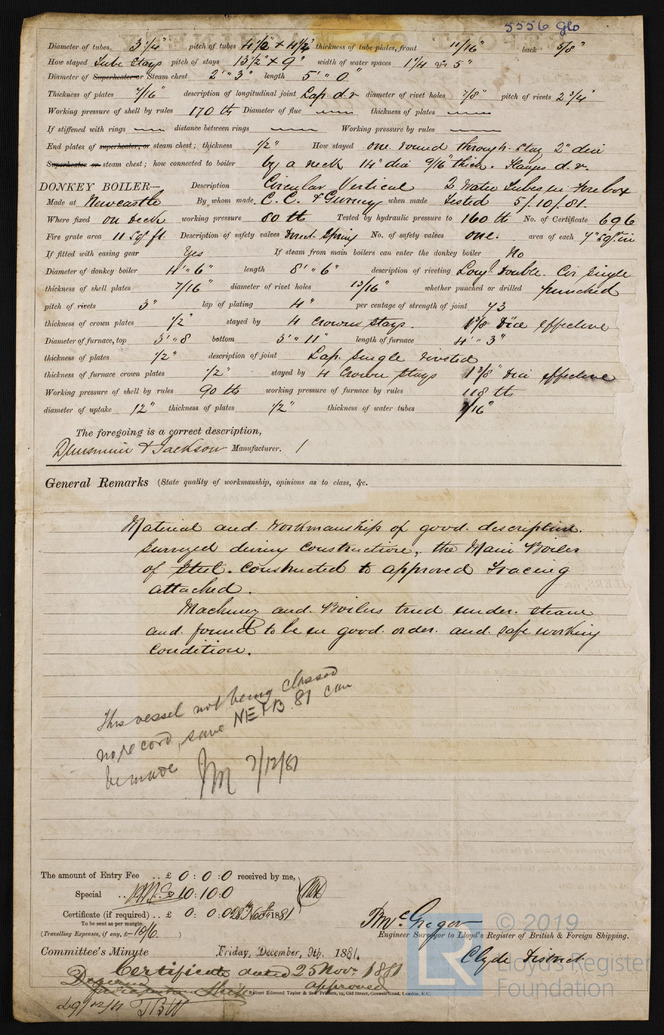 5556 Glo
Diameter of tubes, 3 1/4" pitch of tubes 4 1/2" x 4 1/2" thickness of tube plates, front 11/16" back 5/8"
How stayed Tube Stays pitch of stays 13 1/2" x 9" width of water spaces 1 1/4 & 5"
Diameter of Superheater or Steam chest 2' " 3" length 5' " 0"
Thickness of plates 7/16" description of longitudinal joint Lap. d.r. diameter of rivet holes 7/8" pitch of rivets 2 3/4"
Working pressure of shell by rules 170 lb Diameter of flue — thickness of plates —
If stiffened with rings — distance between rings — Working pressure by rules —
End plates of superheater, or steam chest; thickness 1/2" How stayed one round through stay 2" dia
Superheater or steam chest; how connected to boiler by a neck 14" dia 9/16" thick. Flanges d.r.
DONKEY BOILER— Description Circular Vertical 2 Water Tubes in Firebox
Made at Newcastle By whom made C. C. & Gurney when made Tested 5/10/81.
Where fixed on deck working pressure 80 lb Tested by hydraulic pressure to 160 lb No. of Certificate 696
Fire grate area 11 sq ft. Description of safety valves Direct Spring No. of safety valves one. area of each 7" sq. in
If fitted with easing gear Yes If steam from main boilers can enter the donkey boiler No
Diameter of donkey boiler 4' " 6" length 8' " 6" description of riveting Long. Double. Cir Single
thickness of shell plates 7/16" diameter of rivet holes 13/16" whether punched or drilled punched
pitch of rivets 3" lap of plating 4" per centage of strength of joint 73
thickness of crown plates 1/2" stayed by 4 Crown Stays. 1 7/8 Dia effective
Diameter of furnace, top 3' " 8 bottom 3' " 11" length of furnace 4' " 3"
thickness of plates 1/2" description of joint Lap. Single riveted
thickness of furnace crown plates 1/2" stayed by 4 Crown Stays 1 7/8" Dia effective
Working pressure of shell by rules 90 lb working pressure of furnace by rules 118 lb
diameter of uptake 12" thickness of plates 1/2" thickness of water tubes 7/16"
The foregoing is a correct description,
Dunsmuir & Jackson Manufacturer.
General Remarks (State quality of workmanship, opinions as to class, &c.
Material and Workmanship of good description.
Surveyed during construction, the Main Boiler
of steel. Constructed to approved Tracing
attached.
Machinery and Boilers tried under steam
and found to be in good order. and safe working
condition.
This vessel not being classed
no record, save NE&B 81 can
be made
7/12/81
The amount of Entry Fee .. £ 0 : 0 : 0 received by me,
Special .. 10 : 10 : 0
Certificate (if required) .. £ 0 : 0 : 0 28th Nov 1881
To be sent as per margin.
(Travelling Expenses, if any, £ 10/6)
J McGregor
Engineer Surveyor to Lloyd's Register of British & Foreign Shipping.
Clyde District
Committee's Minute Friday, December, 9th, 1881.
Certificate dated 25 Nov. 1881
approved
© 2019
Lloyd's Register
Foundation